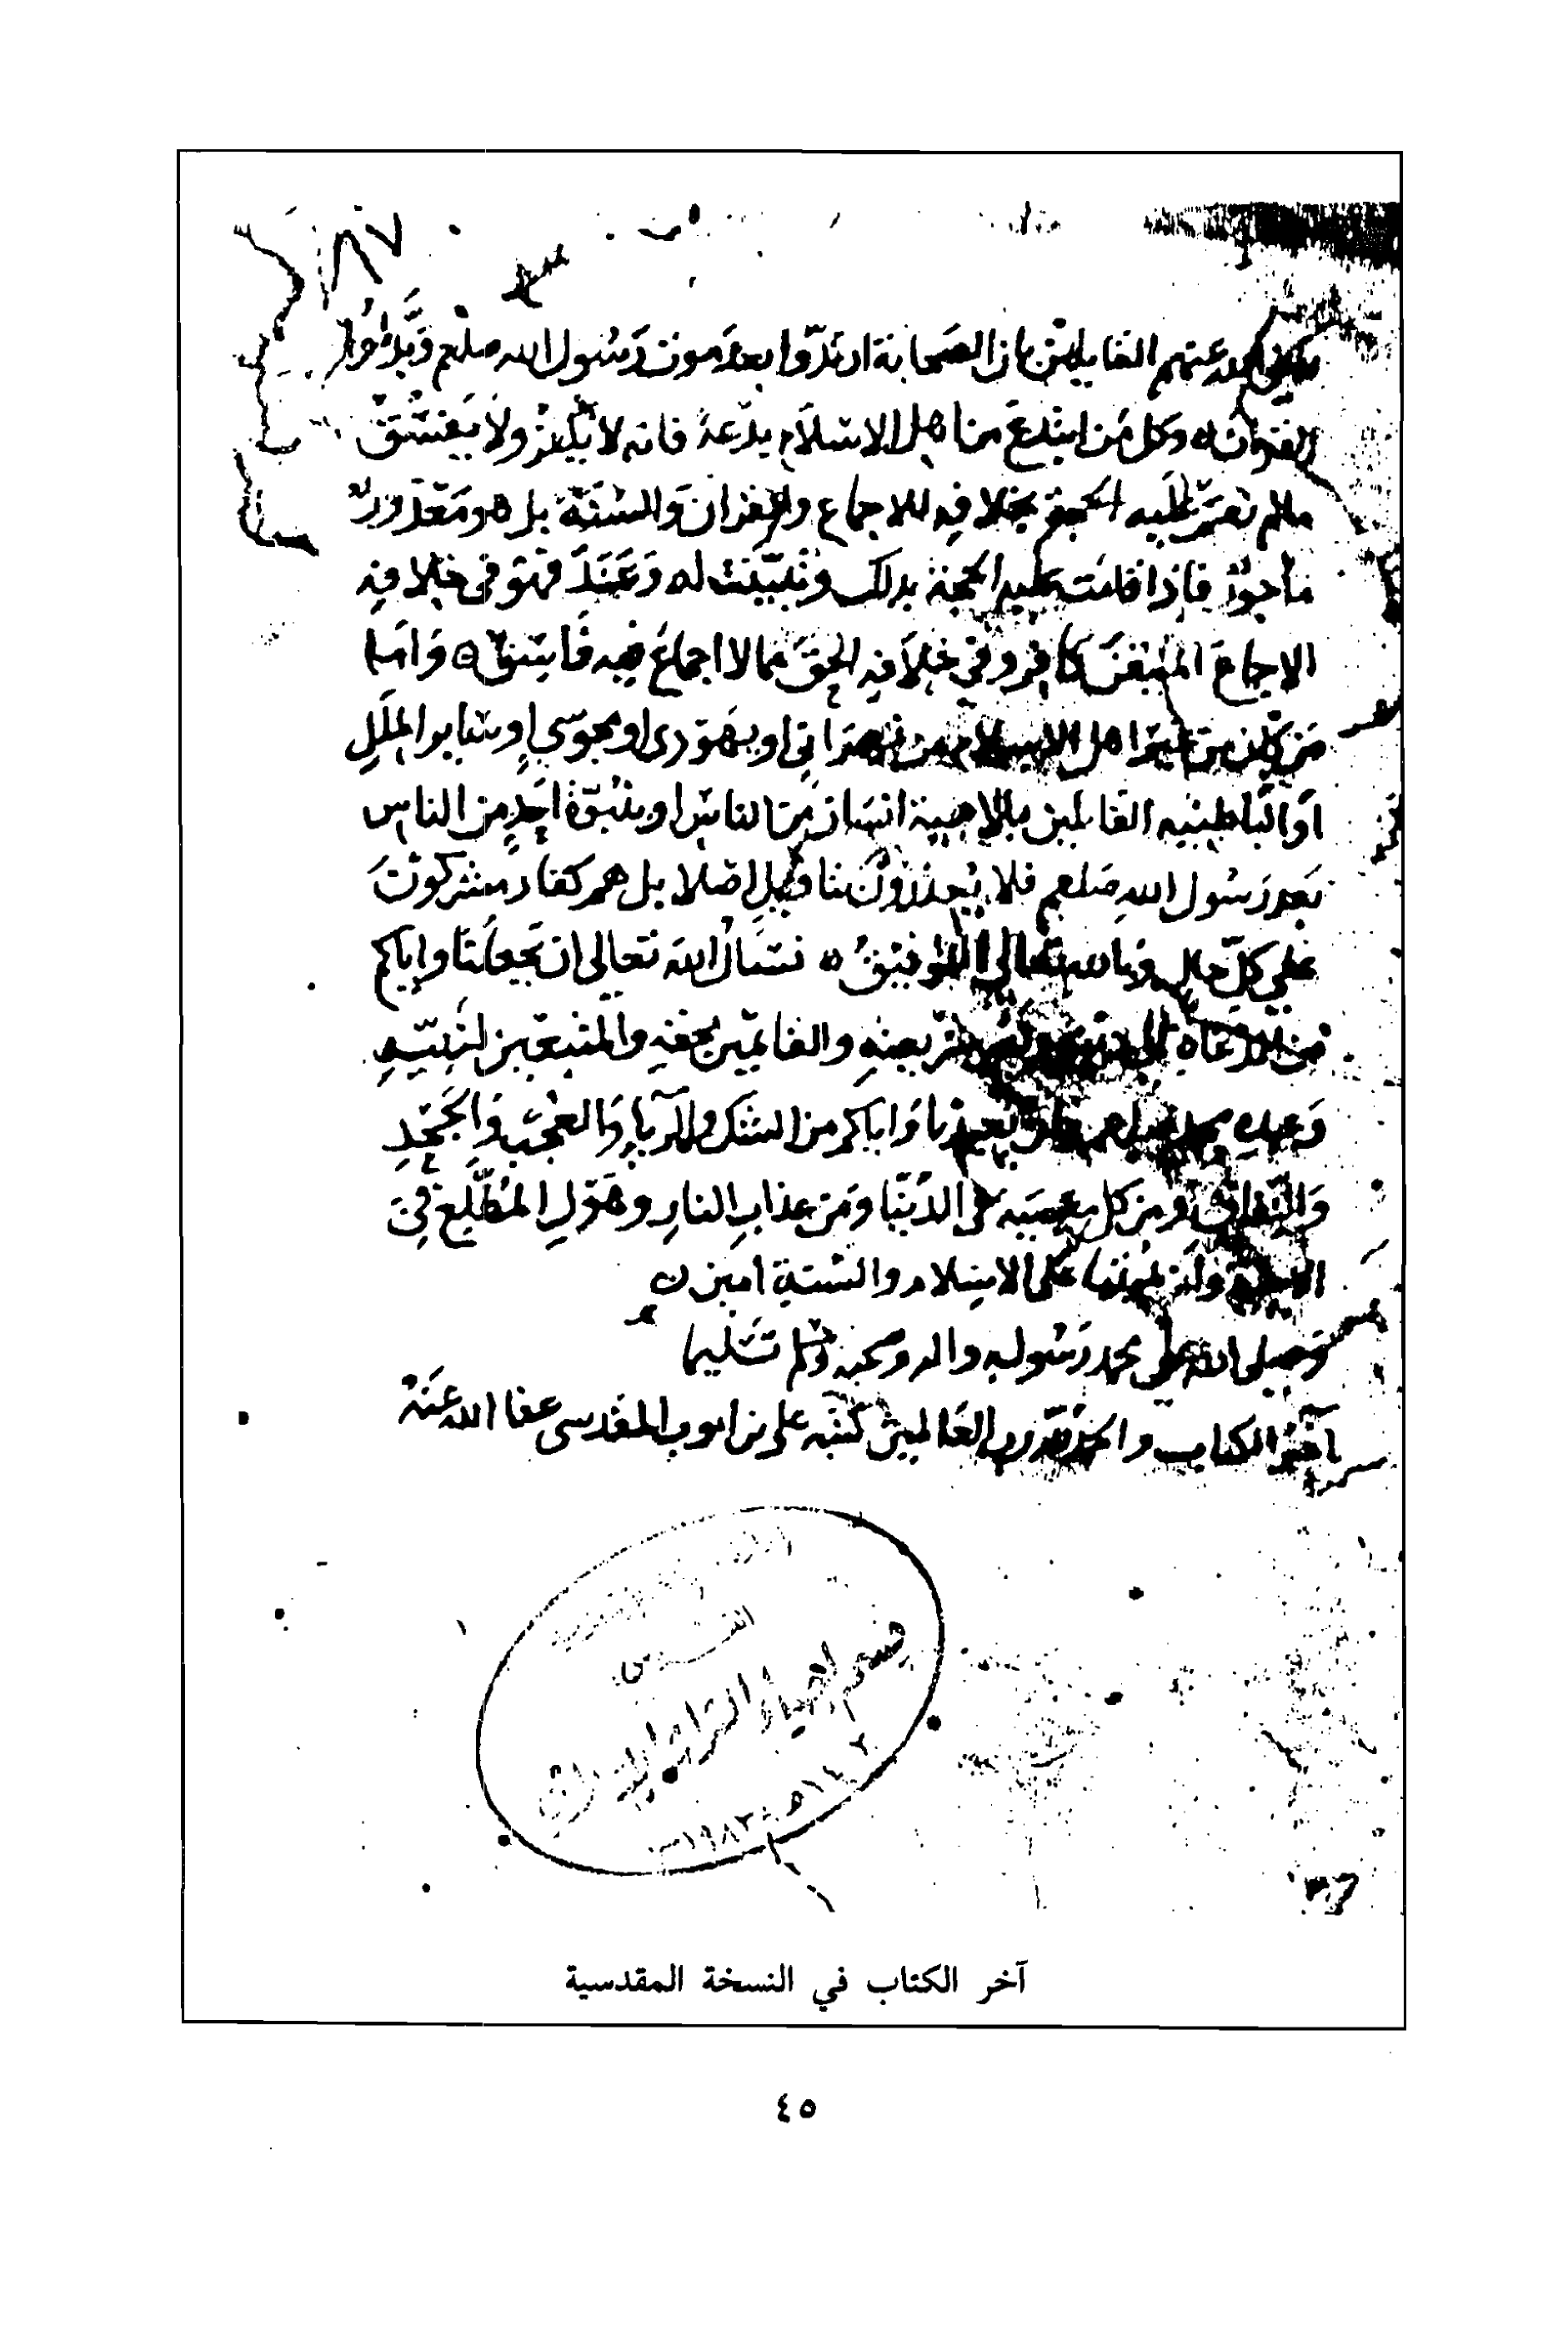 ٨٧
الله عنهم القايلين بان الصحابة ارتدّوا بعد موت رسول الله صلعم وبدّلوا
القران ه وكل من ابتدع من اهل الاسلام بدعة فانه لا يكفر ولا يفسق
مالم تقم عليه الحجة بخلافه للاجماع والقران والسنة بل هو معذور
ماجور فاذا قامت عليه الحجة بذلك وتبينت له وعند فهو في خلافه
الاجماع المتيقن كافر وفي خلافه الحق مما لا اجماع فيه فاسق ه واما
من كان من غير اهل الاسلام من نصراني او يهودي او مجوسي او سائر الملل
او الباطنيه القايلين بالاهية انسان من الناس او بنبوة احد من الناس
بعد رسول الله صلعم فلا يعذرون بتاويل اصلا بل هم كفار مشركون
على كل حال وبالله تعالى التوفيق ه نسال الله تعالى ان يجعلنا واياكم
من الدعاة الى والقائمين بحقه والمتبعين لنبيه
وعبده محمد صلعم وان يعيذنا واياكم من الشك والرياء والعجب والجحد
والنفاق ومن كل معصيه في الدنيا ومن عذاب النار وهول المطلع في
على الاسلام والسنة امين
وصلى الله على محمد رسوله واله وصحبه وسلم تسليما
اخر الكتاب والحمد لله رب العالمين كتبه على بن ايوب المقدسي عفا الله عنه
القدس
قسم احياء التراث الاسلامي
١٤٠٢هـ - ١٩٨٢
آخر الكتاب في النسخة المقدسية
٤٥